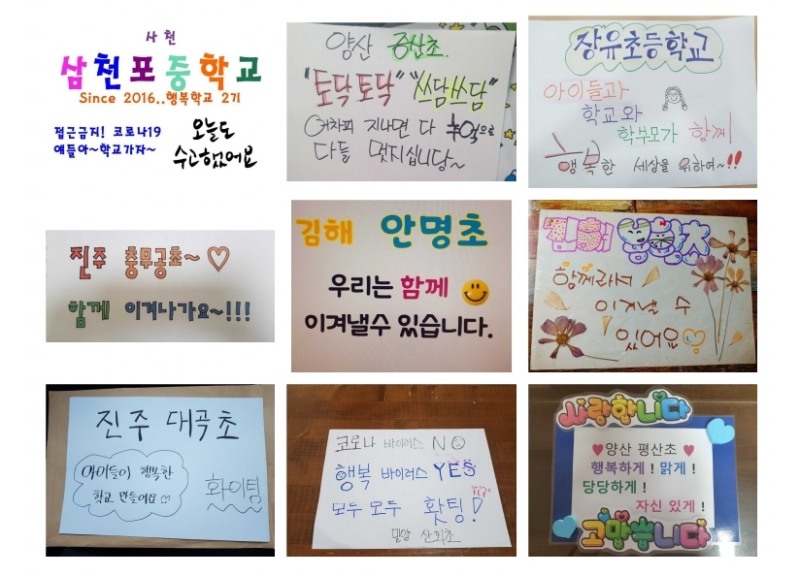 사천
삼천포중학교
Since 2016..행복학교 2기
접근금지! 코로나19
얘들아~학교가자~
오늘도
수고했어요
양산 증산초.
"토닥토닥" "쓰담쓰담"
어차피 지나면 다 추억으로
다들 멋지십니당~
장유초등학교
아이들과
학교와
학부모가 함께
행복한 세상을 위하여~!!
진주 충무공초~♡
함께 이겨나가요~!!!
김해 안명초
우리는 함께
이겨낼수 있습니다.
김해
함께라서
이겨낼 수
있어요♡
진주 대곡초
아이들이 행복한
학교 만들어요♡
화이팅
코로나 바이러스 NO
행복 바이러스 YES
모두 모두 홧팅!
밀양
사랑합니다
♥양산 평산초♥
행복하게! 맑게!
당당하게!
자신 있게!
고맙습니다